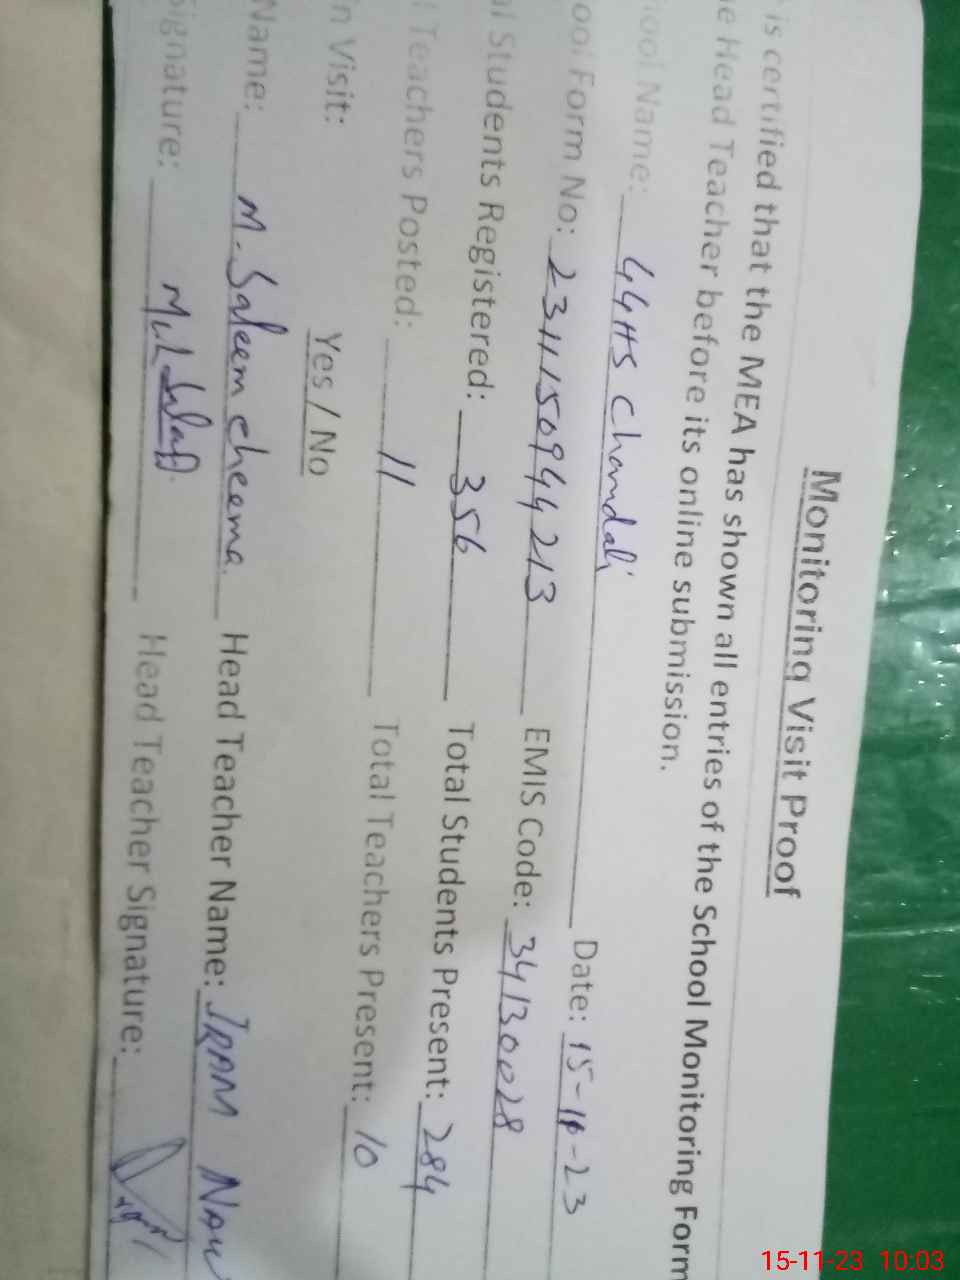 Monitoring Visit Proof
is certified that the MEA has shown all entries of the School Monitoring Form
e Head Teacher before its online submission.
ool Name: GGHS Chamdali Date: 15-11-23
ool Form No: 2311150944213 EMIS Code: 34130028
al Students Registered: 356 Total Students Present: 284
l Teachers Posted: 11 Total Teachers Present: 10
n Visit: Yes / No
Name: M. Saleem cheema Head Teacher Name: IRAM
Signature: Head Teacher Signature:
15-11-23 10:03